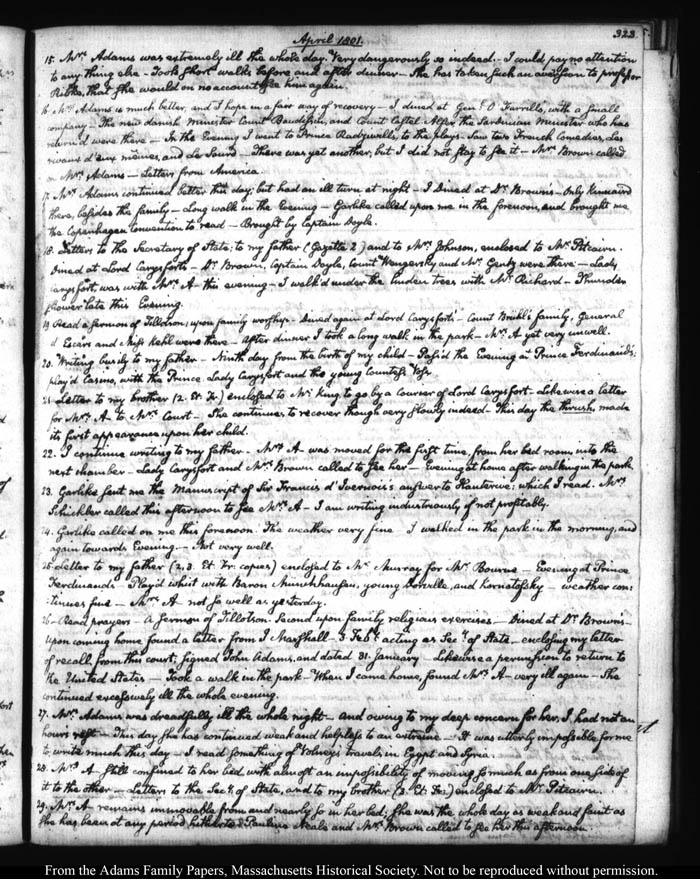 April 1801.
323.
15. Mrs. Adams was extremely ill the whole day. Very dangerously so indeed. — I could pay no attention
to any thing else — Took short walks before and after dinner — She has taken such an aversion to professor
Ribke, that she would on no account see him again.
16. Mrs. Adams is much better, and I hope in a fair way of recovery — I dined at Genl. O Farrill's, with a small
company — The new danish Minister Count Baudissin, and Count Castel Alfer the Sardinian Minister who has
return'd were there — In the Evening I went to Prince Radziwill's, to the plays. Saw two French Comedies, Les
and Le Sourd — There was yet another, but I did not stay to see it — Mrs. Brown called
on Mrs. Adams — Letters from America.
17. Mrs. Adams continued better this day; but had an ill turn at night — I Dined at Dr. Brown's — Only
there, besides the family — Long walk in the Evening — Garlike called upon me in the forenoon, and brought me
the Copenhagen Convention to read — Brought by Captain Doyle.
18. Letters to the Secretary of State; to my father (Gazette 2) and to Mrs. Johnson, enclosed to Mr. Pitcairn.
Dined at Lord Carysfort's — Dr. Brown, Captain Doyle, Count Wengersky and Mr. Gentz were there — Lady
Carysfort was with Mrs. A — this evening — I walk'd under the linden trees with Mr. Richard — Thunder
shower late this Evening.
19. Read a sermon of Tillotson; upon family worship — Dined again at Lord Carysfort's — Count Brühl's family, General
and Miss Kehl were there — After dinner I took a long walk in the park — Mrs. A yet very unwell.
20. Writing busily to my father — Ninth day from the birth of my child — Pass'd the Evening at Prince Ferdinand's;
play'd Casino, with the Prince, Lady Carysfort and the young Countess Voss.
21. Letter to my brother (2. Et. Fr.) enclosed to Mr. King to go by a Courier of Lord Carysfort — Likewise a letter
for Mrs. A to Mrs. Court — She continues to recover though very slowly indeed — This day the thrush, made
its first appearance upon her child.
22. I continue writing to my father — Mrs. A — was moved for the first time, from her bed room, into the
next chamber — Lady Carysfort and Mrs. Brown called to see her — Evening at home after walking in the park.
23. Garlike sent me the Manuscript of Sir Francis d'Ivernois's answer to Hauterive; which I read. Mrs.
Schickler called this afternoon to see Mrs. A — I am writing industriously if not profitably.
24. Garlike called on me this forenoon. The weather very fine — I walked in the park in the morning, and
again towards Evening — Not very well.
25. Letter to my father (2, 3. Et. Fr. copies) enclosed to Mr. Murray for Mr. Bourne — Evening at Prince
Ferdinands — Play'd whist with Baron Munchhausen, young and — weather con:
:tinues fine — Mrs. A — not so well as yesterday.
26. Read prayers — A sermon of Tillotson. Second upon family religious exercises — Dined at Dr. Brown's —
Upon coming home found a letter from J Marshall — 3 Feby. acting as Secy. of State — enclosing my letter
of recall from this court, signed John Adams, and dated 31. January — Likewise a permission to return to
the United States — Took a walk in the park — When I came home, found Mrs. A — very ill again — She
continued excessively ill the whole evening.
27. Mrs. Adams was dreadfully ill the whole night — and owing to my deep concern for her, I had not an
hours rest — This day she has continued weak and helpless to an extreme — It was utterly impossible for me
to write much this day — I read something of Volney's travels in Egypt and Syria.
28. Mrs. A — still confined to her bed, with almost an impossibility of moving so much as from one side of
it to the other — Letters to the Secy. of State, and to my brother (3. Et. Fr.) enclosed to Mr. Pitcairn.
29. Mrs. A remains immovable from and nearly so in her bed; she was the whole day as weak and faint as
she has been at any period hitherto — Pauline Neale and Mrs. Brown called to see her this afternoon.
From the Adams Family Papers, Massachusetts Historical Society. Not to be reproduced without permission.